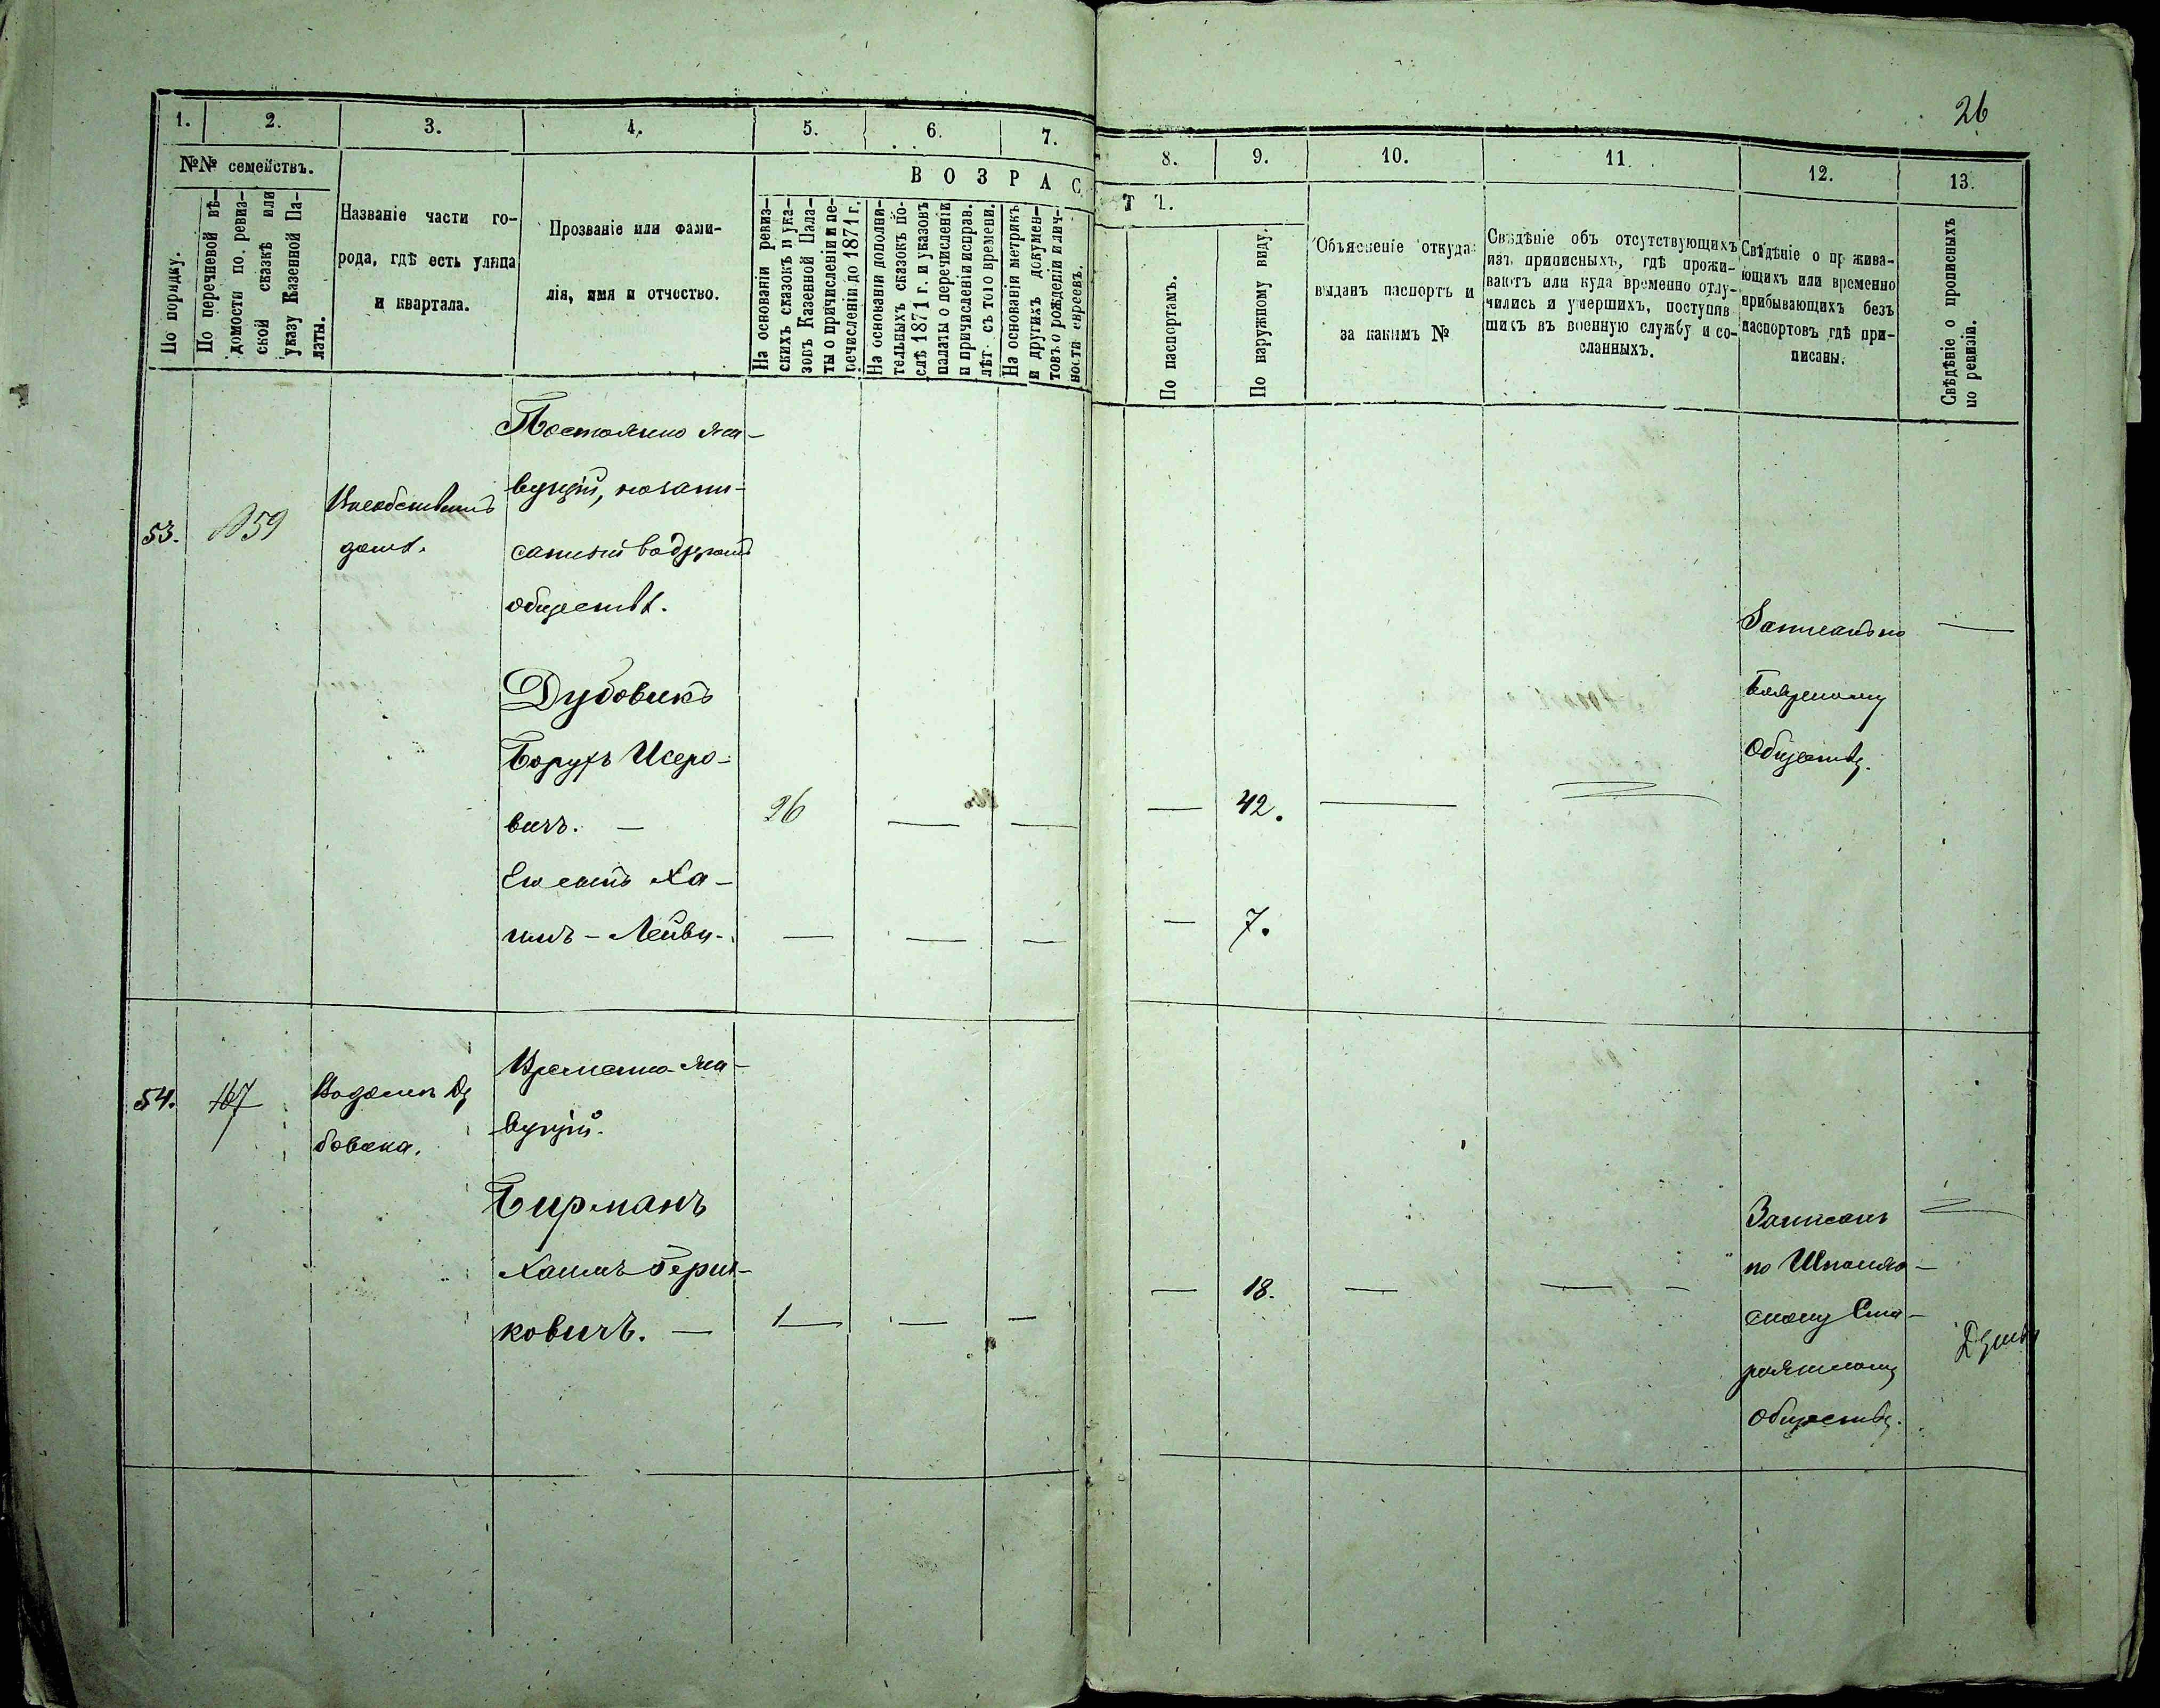 26
1.
2.
3.
4.
5.
6.
7.
8.
9.
10.
11.
12.
13.
№№ семействъ.
По порядку.
По перечневой вѣ-
домости по ревиз-
ской сказкѣ или
указу Казенной Па-
латы.
Названіе части го-
рода, гдѣ есть улица
и квартала.
Прозваніе или фами-
лія, имя и отчество.
ВОЗРАС
ТЪ.
На основаніи ревиз-
скихъ сказокъ и ука-
зовъ Казенной Пала-
ты о причисленіи и пе-
речисленіи до 1871 г.
На основаніи дополни-
тельныхъ сказокъ по-
слѣ 1871 г. и указовъ
палаты о перечисленіи
и причисленіи исправ.
лѣт. съ того времени.
На основаніи метрикъ
и другихъ докумен-
товъ о рожденіи и лич-
ности евреевъ.
По паспортамъ.
По наружному виду.
Объясненіе откуда
выданъ паспортъ и
за какимъ №
Свѣдѣніе объ отсутствующихъ
изъ приписныхъ, гдѣ прожи-
ваютъ или куда временно отлу-
чились и умершихъ, поступив
шихъ въ военную службу и со-
сланныхъ.
Свѣдѣніе о прожива-
ющихъ или временно
прибывающихъ безъ
паспортовъ гдѣ при-
писаны.
Свѣдѣніе о прописныхъ
по ревизіи.
53.
59
домѣ.
Постоянно жи-
вущій, но запи-
санный въ другомъ
обществѣ.
Дубовикъ
Борухъ Исеро-
вичъ. —
26
—
—
—
42.
—
—
Записанъ по
Обществу.
—
Его сынъ Ха-
имъ-Лейви-
—
—
—
—
7.
54.
Въ домѣ Ду
бовика.
Временно жи-
вущій.
Бирманъ
Хаимъ Берш-
ковичъ. —
1
—
—
—
18.
—
—
Записанъ
по Шполян-
скому Ста-
Обществу.
—